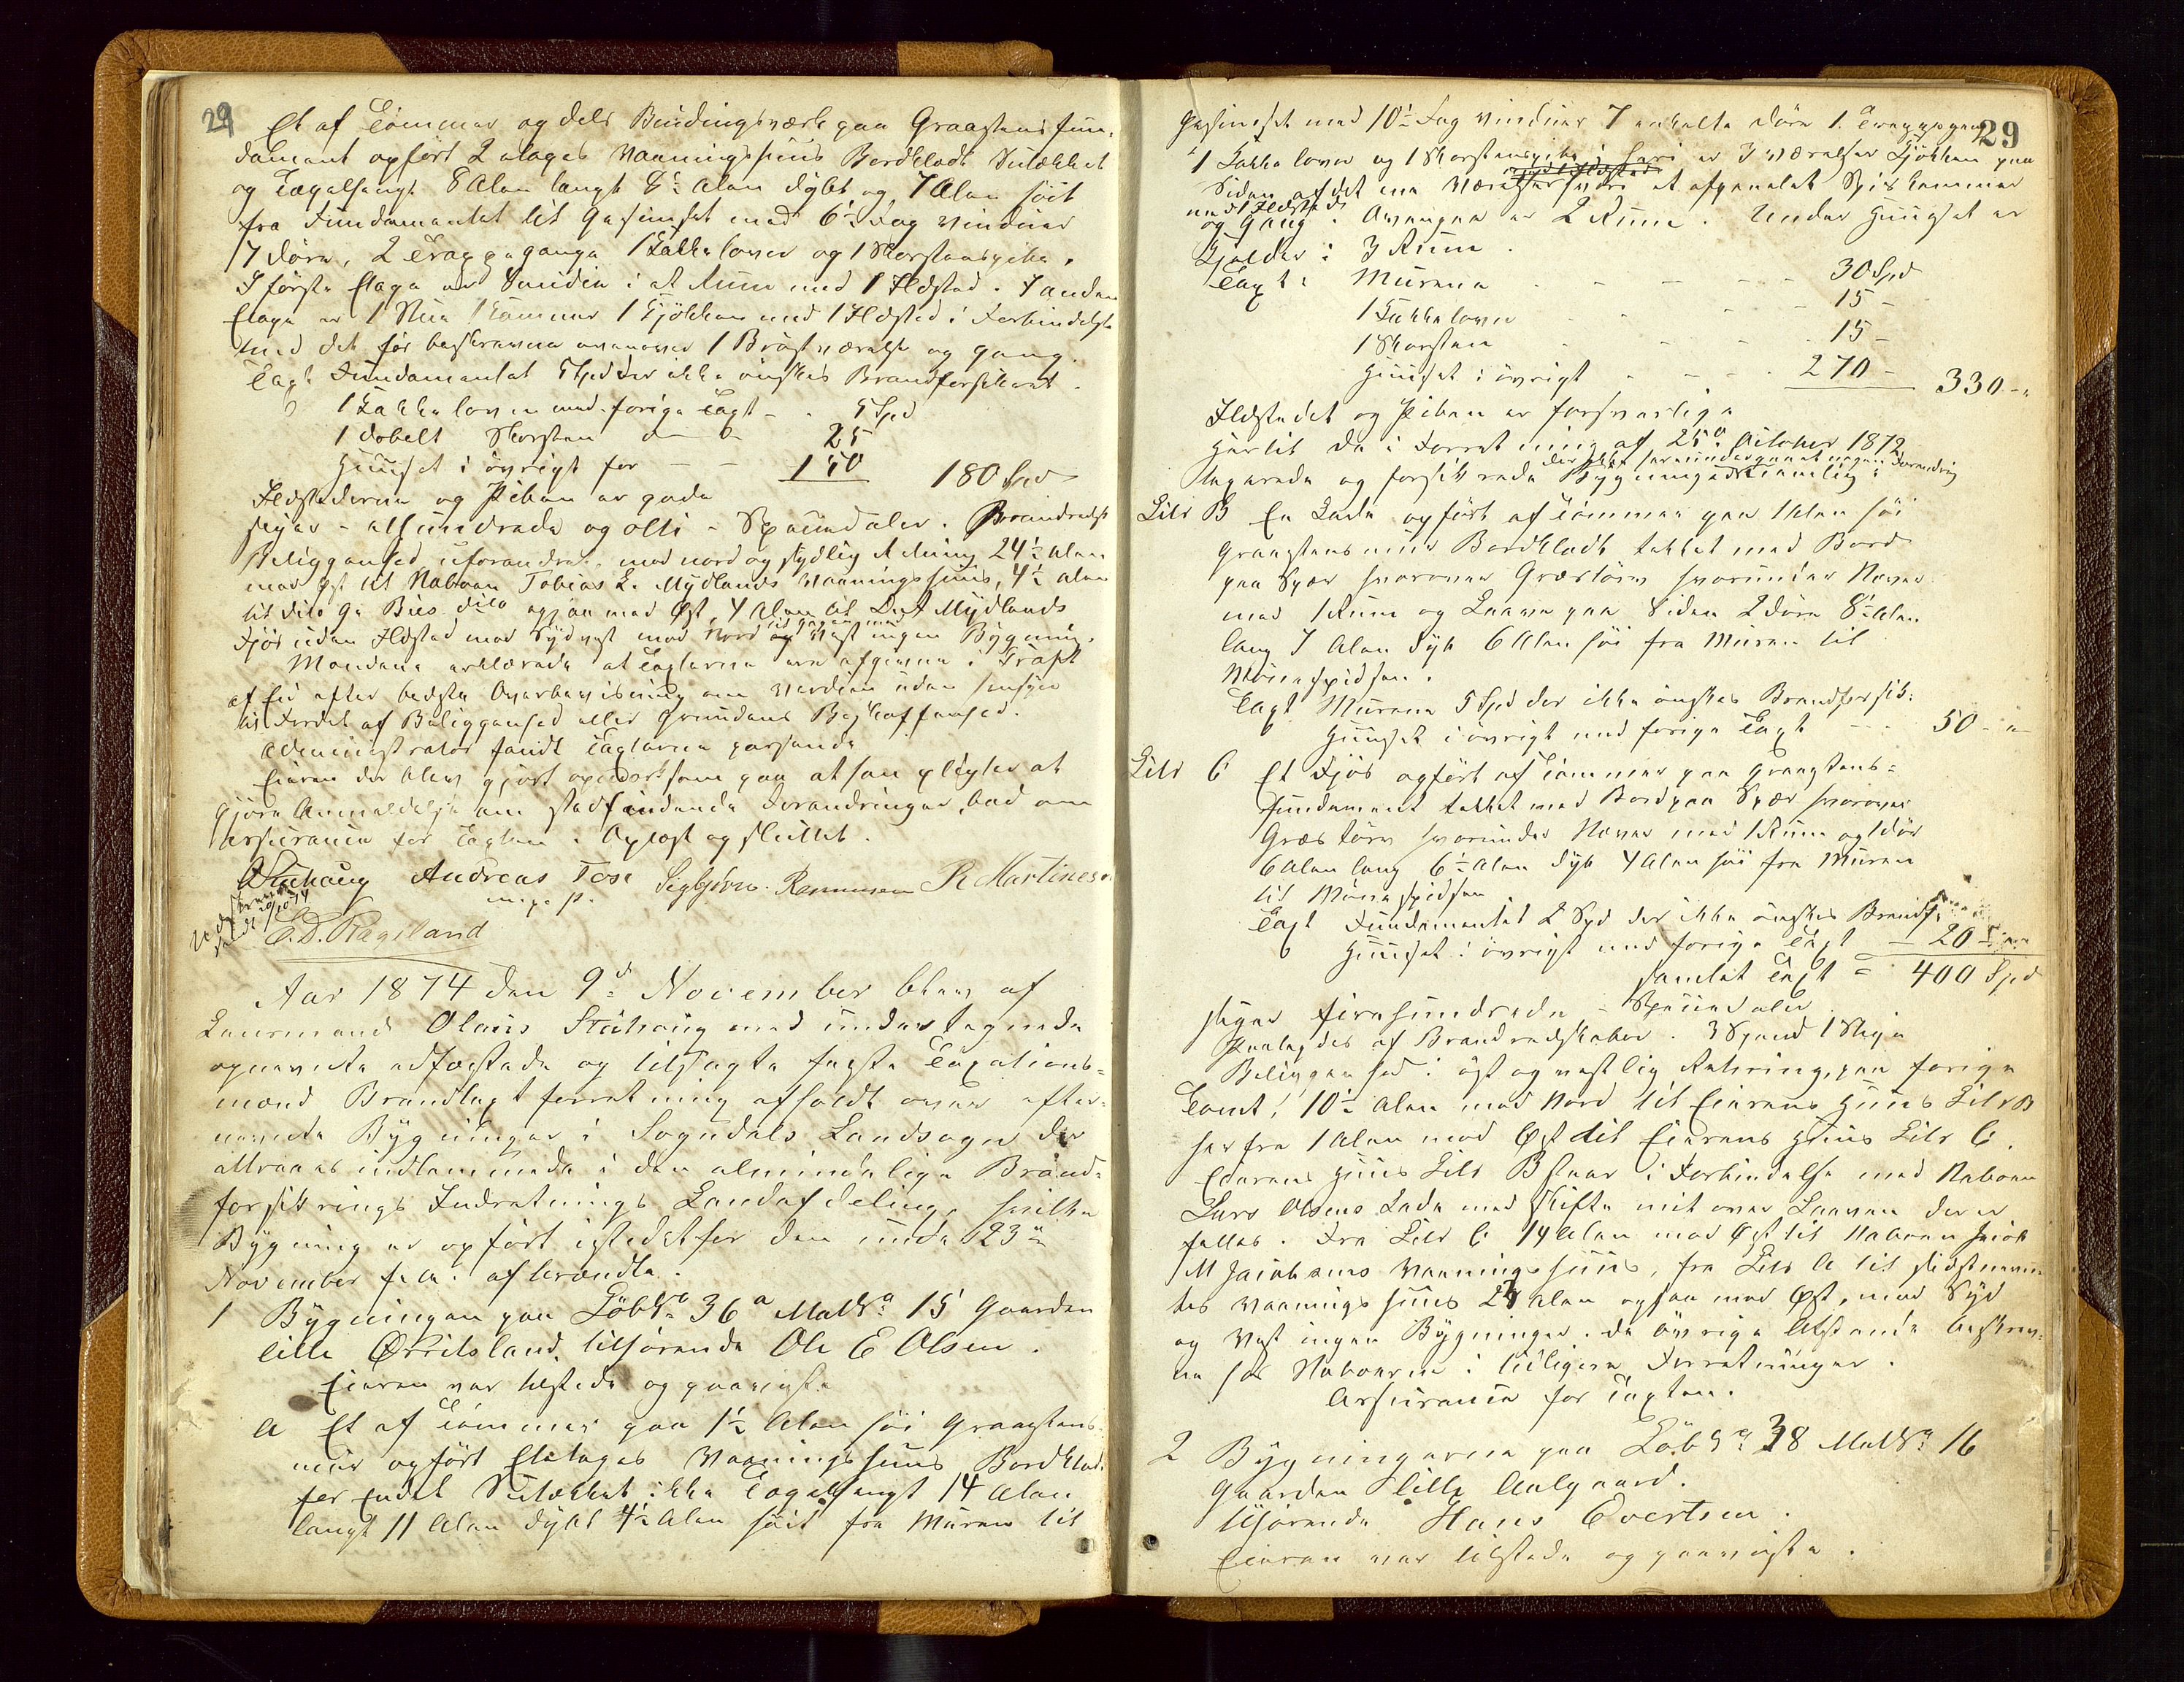 29
Et af Tömmer og dels Bindingsværk paa Graastensfun-
dament opført 2 etages Vaaningshuus Bordklædt Sutækket
og Tegelhængt 8 Alen langt 8½ Alen dybt og 7 Alen höit
fra Fundamentet til Gesimset med 6½ Fag Vinduer
7 döre, 2 Trappegange 1 Kakkelovn og 1 Skorstenspibe.
I første Etage er Smidie i et Rum med 1 Ildsted. I anden
Etage er 1 Stue 1 Kammer 1 Kjökken med 1 Ildsted i Forbindelse
med det før beskrevne ovenover 1 Bröstværelse og Gang.
Taxt Fundamentet 5 Spd der ikke önskes Brandforsikret.
1 Kakkelovn med forige Taxt - - 5 Spd
1 dobelt Skorsten d- o- 25
Huuset i övrigt for - - 150 180 Spd
Ildstederne og Piben er gode
siger - et hundrede og otti - Speciedaler. Brandredsk
Beliggenhed uforandret. mod nord og sydlig Retning 24½ Alen
mod Øst til Naboen Tobias L. Mydlands Vaaningshuus, 4½ Alen
til dito G. Bies dito ogsaa mod Øst, 4 Alen til Dit Mydlands
Fjös uden Ildsted mod Sydvest mod Nord og Vest ingen Bygning.
Mændene erklærede at Taxterne ere afgivne i Kraft
af Eed efter bedste Overbeviisning om Verdien uden Hensyn
til Fordel af Beliggenhed eller Grundens Beskaffenhed.
Administrator fandt Taxterne passende
Eieren der blev gjort opmerksom paa at han pligter at
gjöre Anmeldelse om stedfindende Forandringer, bad om
Assurance for Taxten. Oplæst og sluttet.
Stuhaug Andreas Tese Sigbjörn Rasmussen R Martinesen
m. p. P.
E. D. Rægeland
Aar 1874 den 9d November blev af
Lensmand Olaus Stuhoug med undertegnede
opnævnte edfæstede og tilsagte faste Taxations-
mænd Brandtaxtforretning afholdt over efter-
nævnte Bygninger i Sogndals Landsogn der
attraaes indlemmede i den almindelige Brand-
forsikrings Indretnings Landafdeling, hvilke
Bygning er opført istedetfor den under 23de
November f. A. afbrændte.
1 Bygningen paa LöbNo 36a MatNo 15 Gaarden
lille Ørritsland, tilhørende Ole E Olsen.
Eieren var tilstede og paaviste
A Et af Tömmer paa 1½ Alen höi Graastens-
muur opført Etetages Vaaningshuus Bordklæd
for Enden Sutækket ikke Tegelhængt 14 Alen
langt 11 Alen dybt 4½ Alen höit fra Muren til
29
Gesimset med 10½ Fag Vinduer 7 enkelte döre 1 Trappegang
1 Kakkelovn og 1 Skorstenspibe heri er 3 Værelser Kjökken paa
Siden af det ene Værelse et afpanelet Spiskammer
med 1 Ildsted
og Gang. Ovenpaa er 2 Rum. Under Huuset er
Kjælder i 3 Rum.
Taxt: Murene - - - - 30 Spd
1 Kakkelovn - - - 15 -
1 Skorsten - - - 15 -
Huuset i övrigt - - - 270 - 330 - "
Ildstedet og Piben er forsvarlige
Hertil de i Forretning af 25de October 1872
der ikke har undergaaet nogen Forandring
tagerede og forsikrede Bygninger nemlig:
Litr B En Lade opført af Tömmer paa 1 Alen höi
Graastensmuur Bordklædt tækket med Bord
paa Spær hvorover Græstörv hvorunder Næver
med 1 Rum og Laave paa Siden 2 döre 8½ Alen
lang 7 Alen dyb 6 Alen höi fra Muren til
Mönespidsen.
Taxt Murene 5 Spd der ikke önskes Brandforsik:
Huuset i övrigt med forige Taxt - - 50 - "
Litr C Et Fjös opført af Tömmer paa Graastens-
fundament tækket med Bord paa Spær hvorover
Græstörv hvorunder Næver med 1 Rum og 1 dör
6 Alen lang 6½ Alen dyb 4 Alen höi fra Muren
til Mönespidsen
Taxt Fundamentet 2 Spd der ikke önskes Brandf.
Huuset i övrigt med forige Taxt - 20
samlet Taxt = 400 Spd
siger firehundrede - Speciedaler.
Paalagdes af Brandredskaber. 3 Spand 1 Stige
Beliggenhed: i öst og vestlig Retning, paa forige
Tomt, 10½ Alen mod Nord til Eierens Huus Litr B
herfra 1 Alen mod Øst til Eierens Huus Litr C.
Eierens Huus Litr B staar i Forbindelse med Naboen
Lars Olsens Lade med Skifte mit over Laaven der er
fælles. Fra Litr C 14 Alen mod Øst til Naboen Jacob
M Jacobsens Vaaningshuus, fra Litr A til sidstnævn
tes Vaaningshuus 24 Alen ogsaa mod Øst, mod Syd
og Vest ingen Bygninger. De övrige Afstande beskrev-
ne hos Naboerne i tidligere Forretninger.
Assurance for Taxten.
2 Bygningerne paa LöbNo 38 MatNo 16
Gaarden lille Aalgaard.
tilhörende Hans Evertsen.
Eieren var tilstede og paaviste.